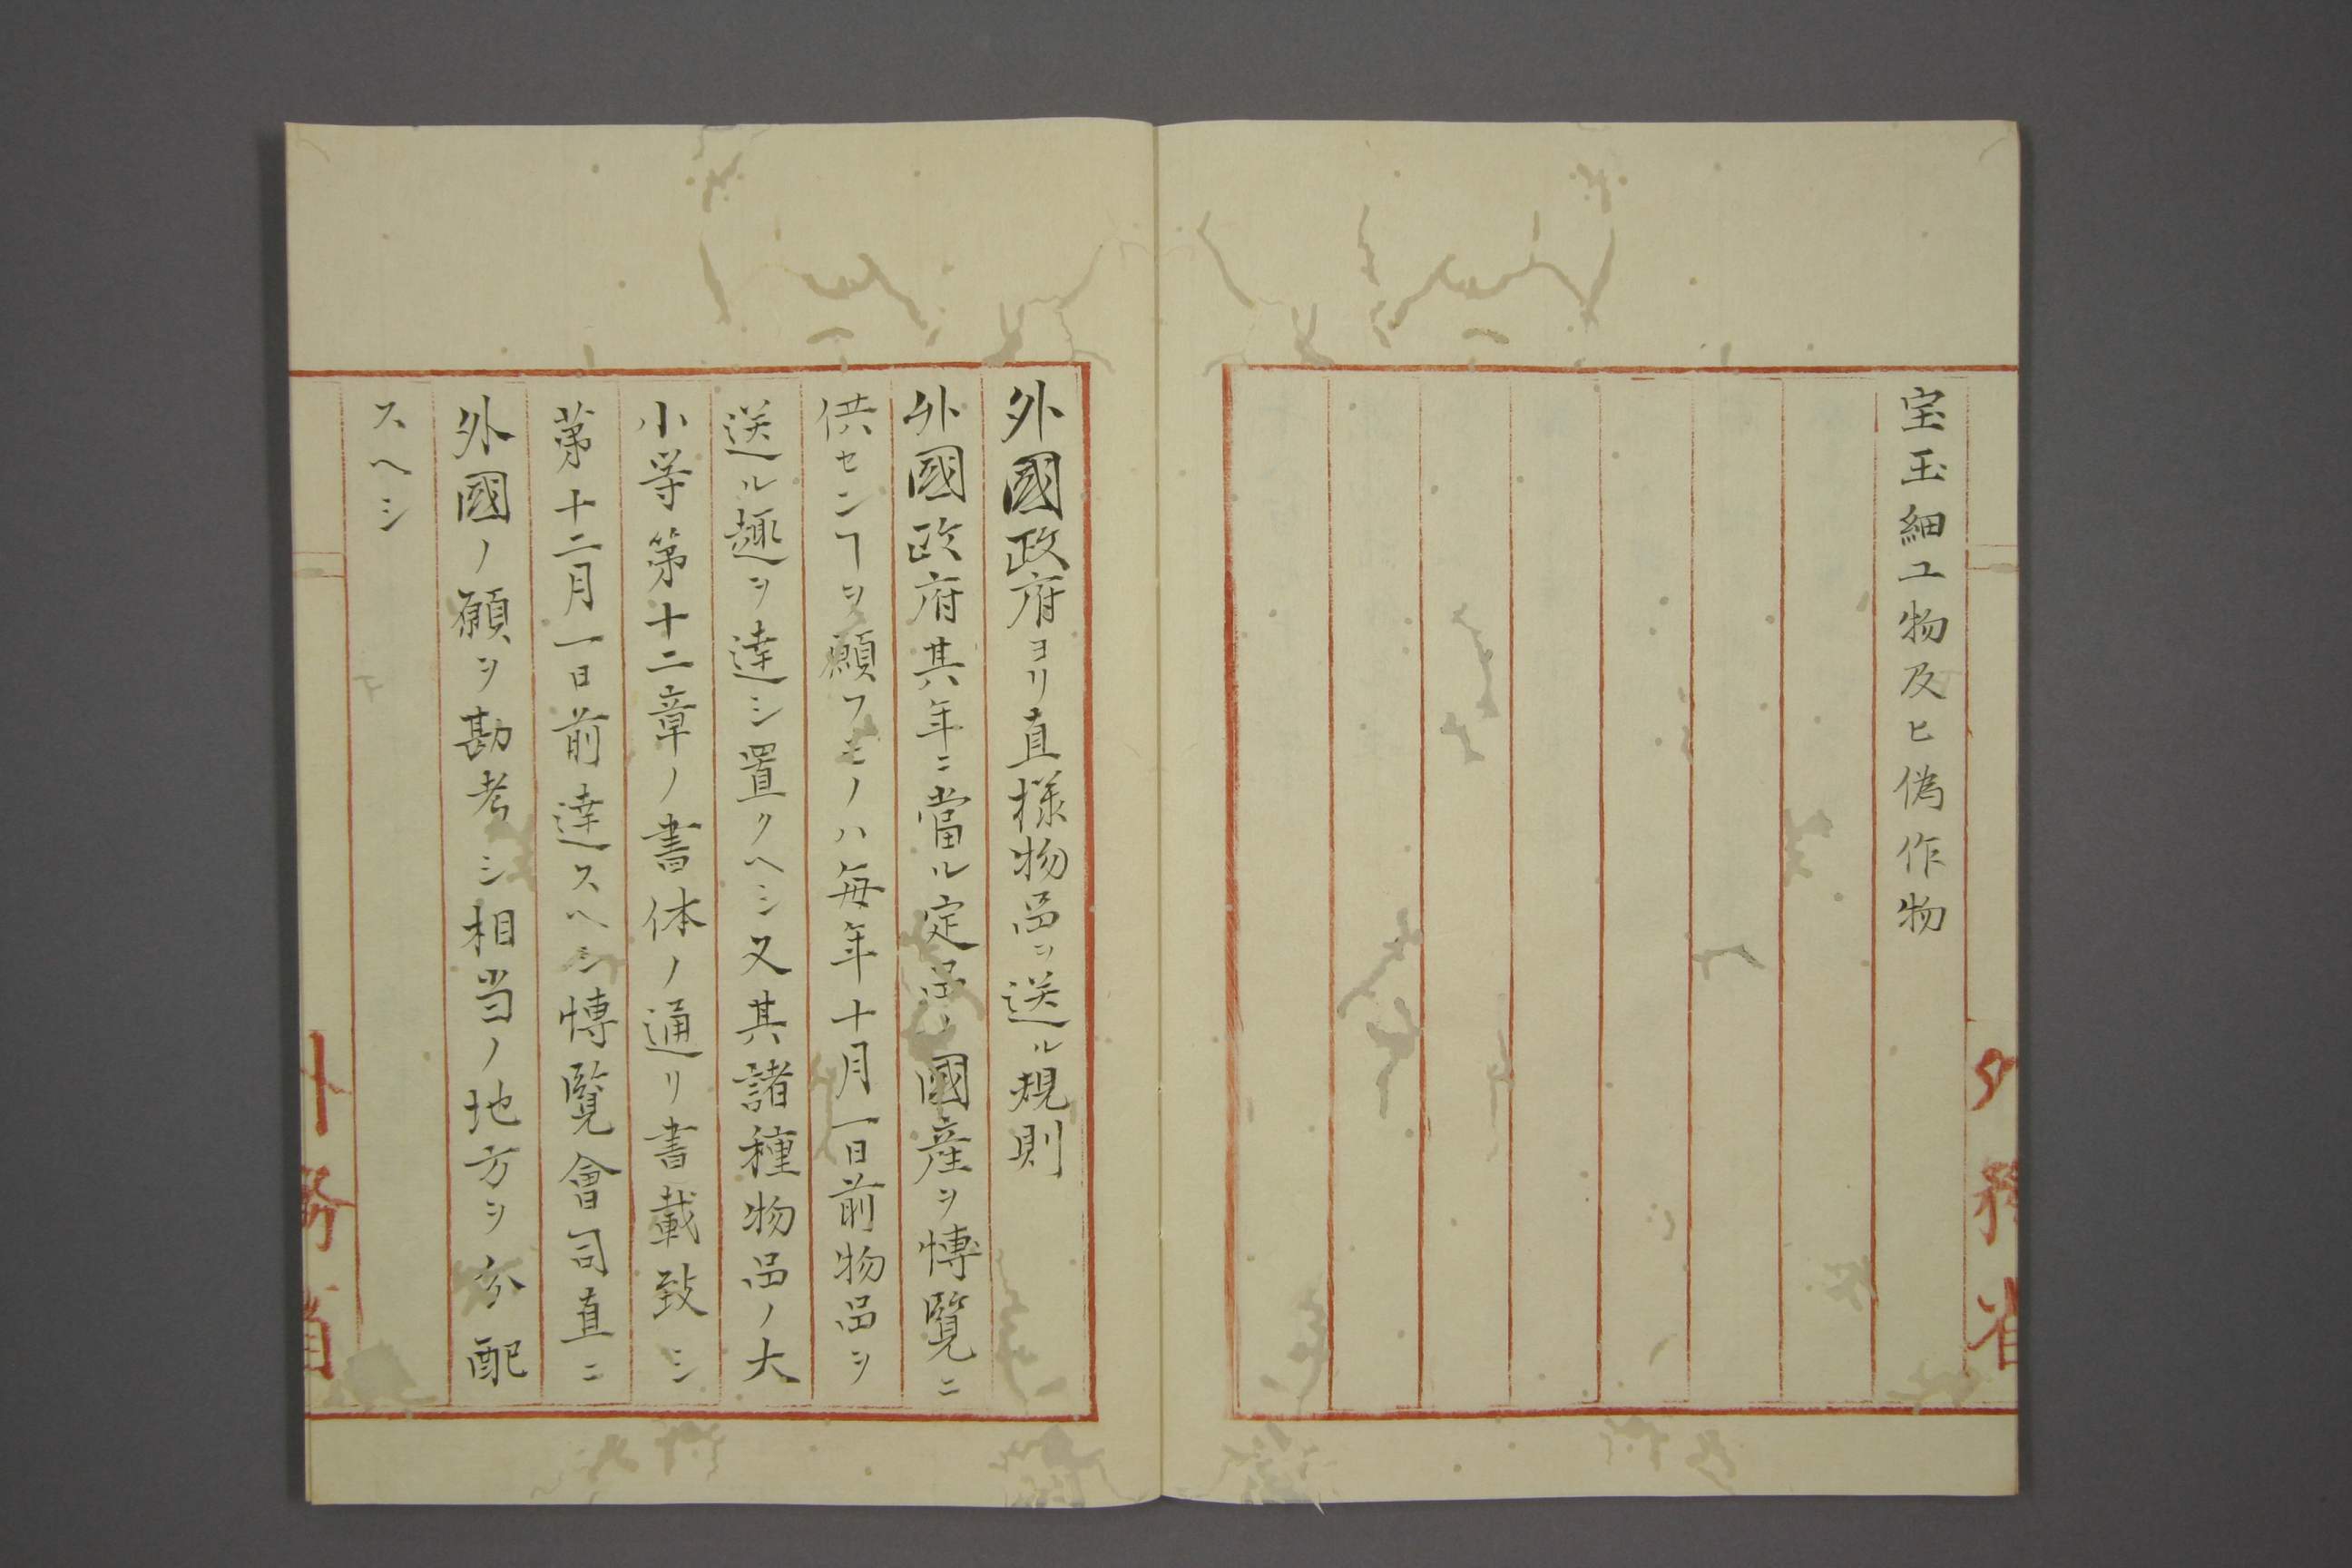 宝玉細工物及ヒ偽作物
外務省
外國政府ヨリ直様物品ヲ送ル規則
外國政府其年ニ當ル定品ノ國産ヲ博覧ニ
供センヿヲ願フモノハ毎年十月一日前物品ヲ
送ル趣ヲ達シ置クヘシ又其諸種物品ノ大
小等第十二章ノ書体ノ通リ書載致シ
第十二月一日前達スヘシ博覧會司直ニ
外國ノ願ヲ勘考シ相当ノ地方ヲ分配
スヘシ
外務省